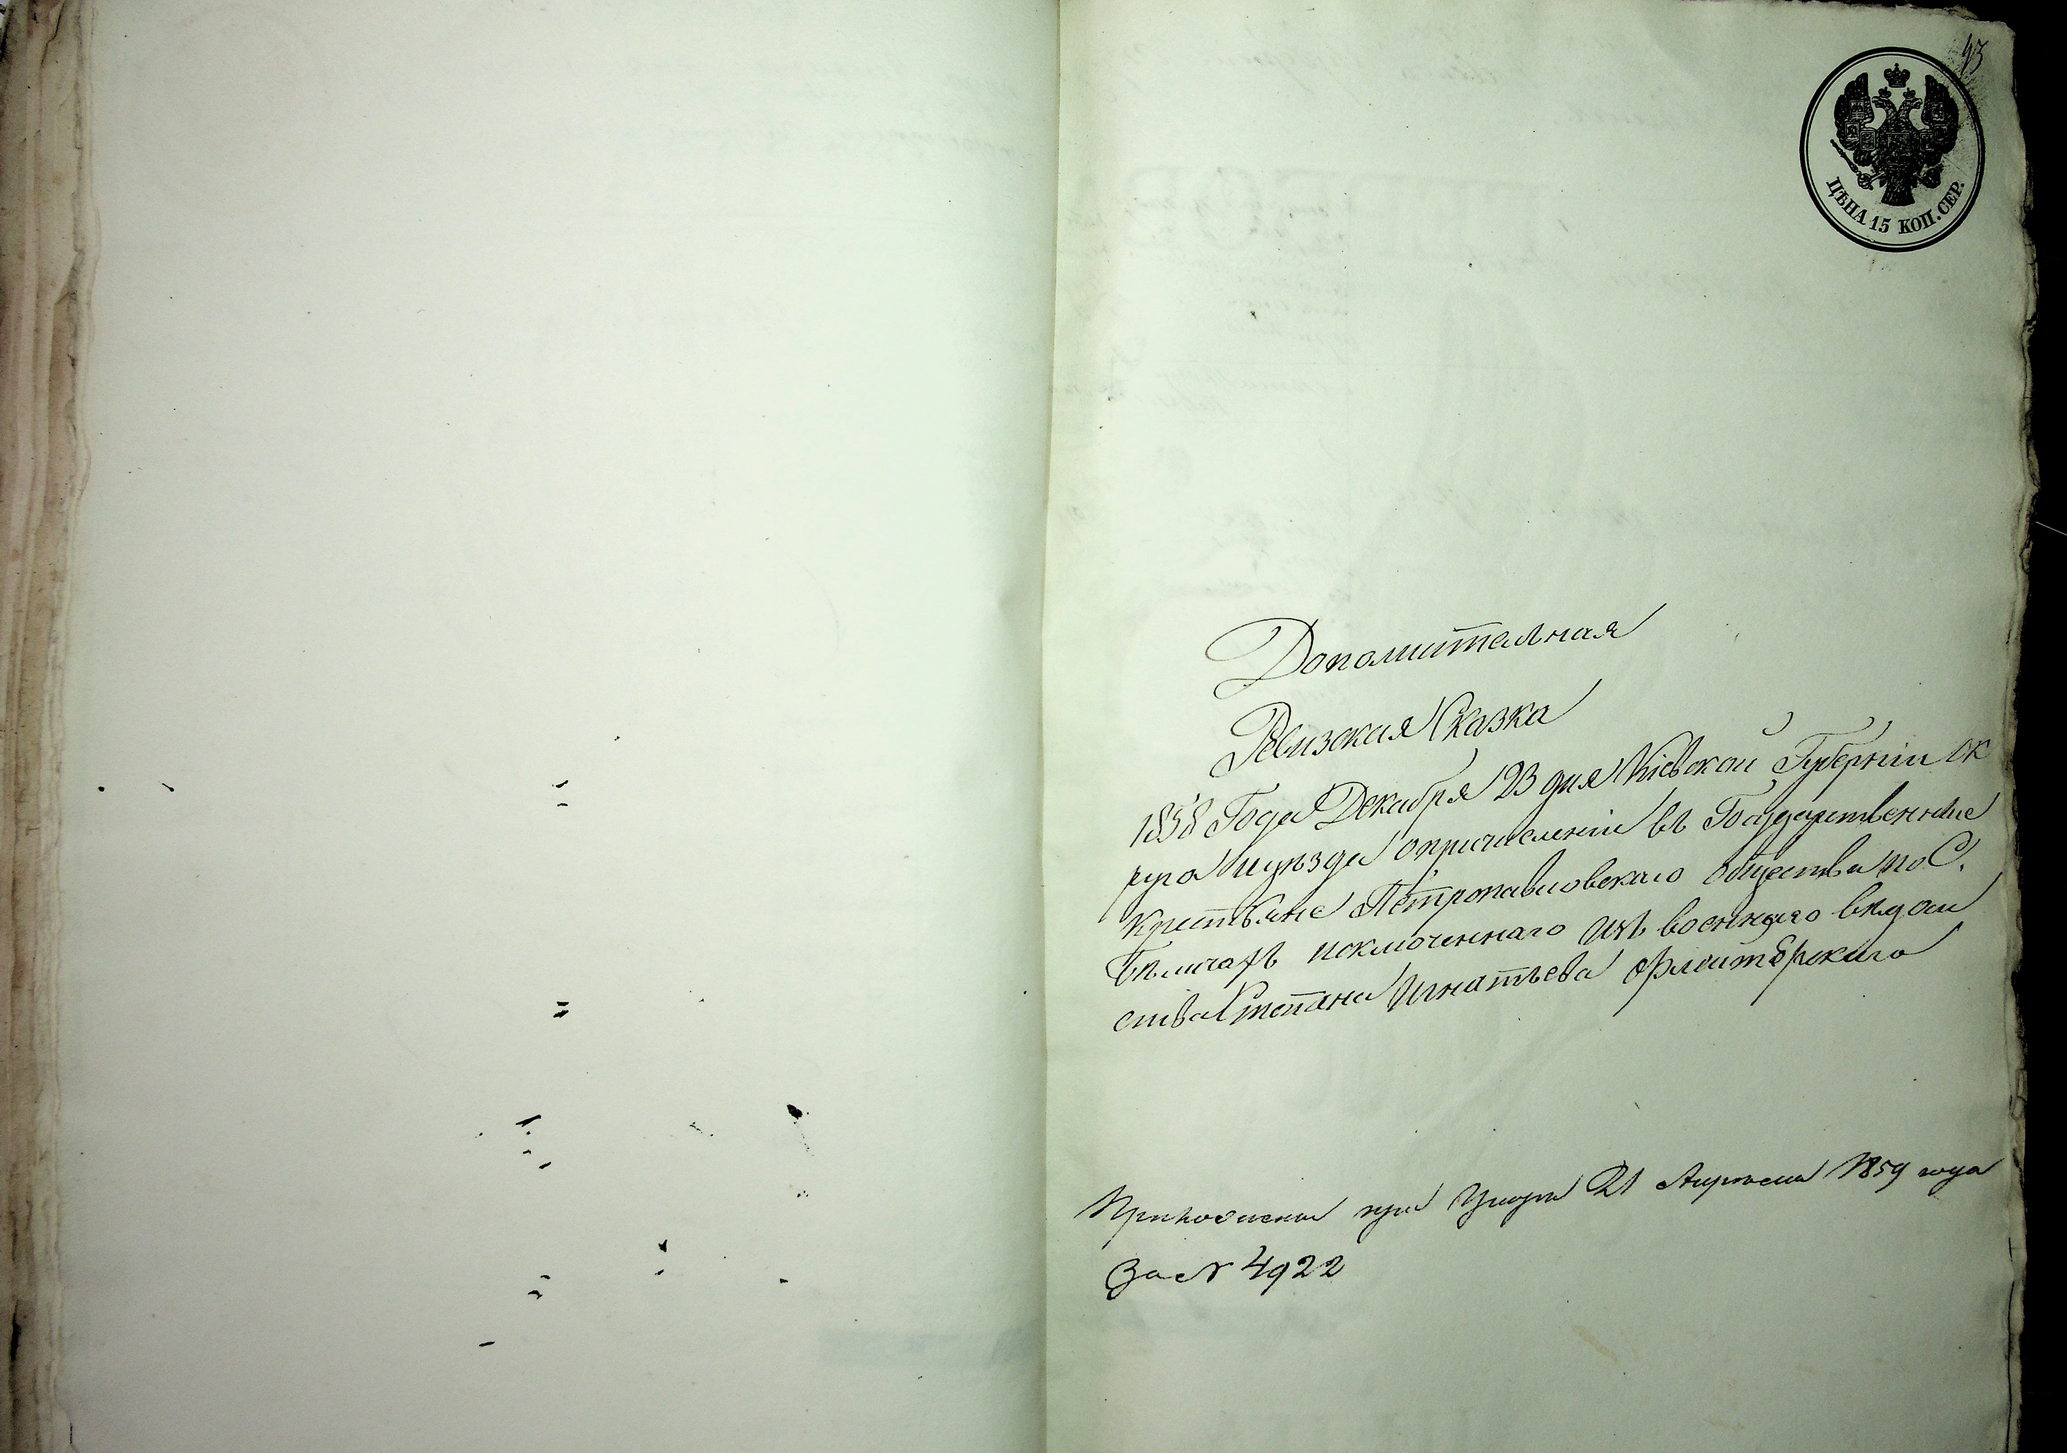 43
ЦѢНА 15 КОП. СЕР.
Дополнительная
Ревизская Сказка
1858 Года Декабря 23 дня Кіевской Губерніи ск
руга и уѣзда опричисленіи въ Государственные
крестьяне Петропавловскаго общества по С.
Бѣличахъ исключеннаго изъ военнаго вѣдом
ства Степана Игнатьева
при Указѣ 21 Апрѣля 1859 года
За № 4922